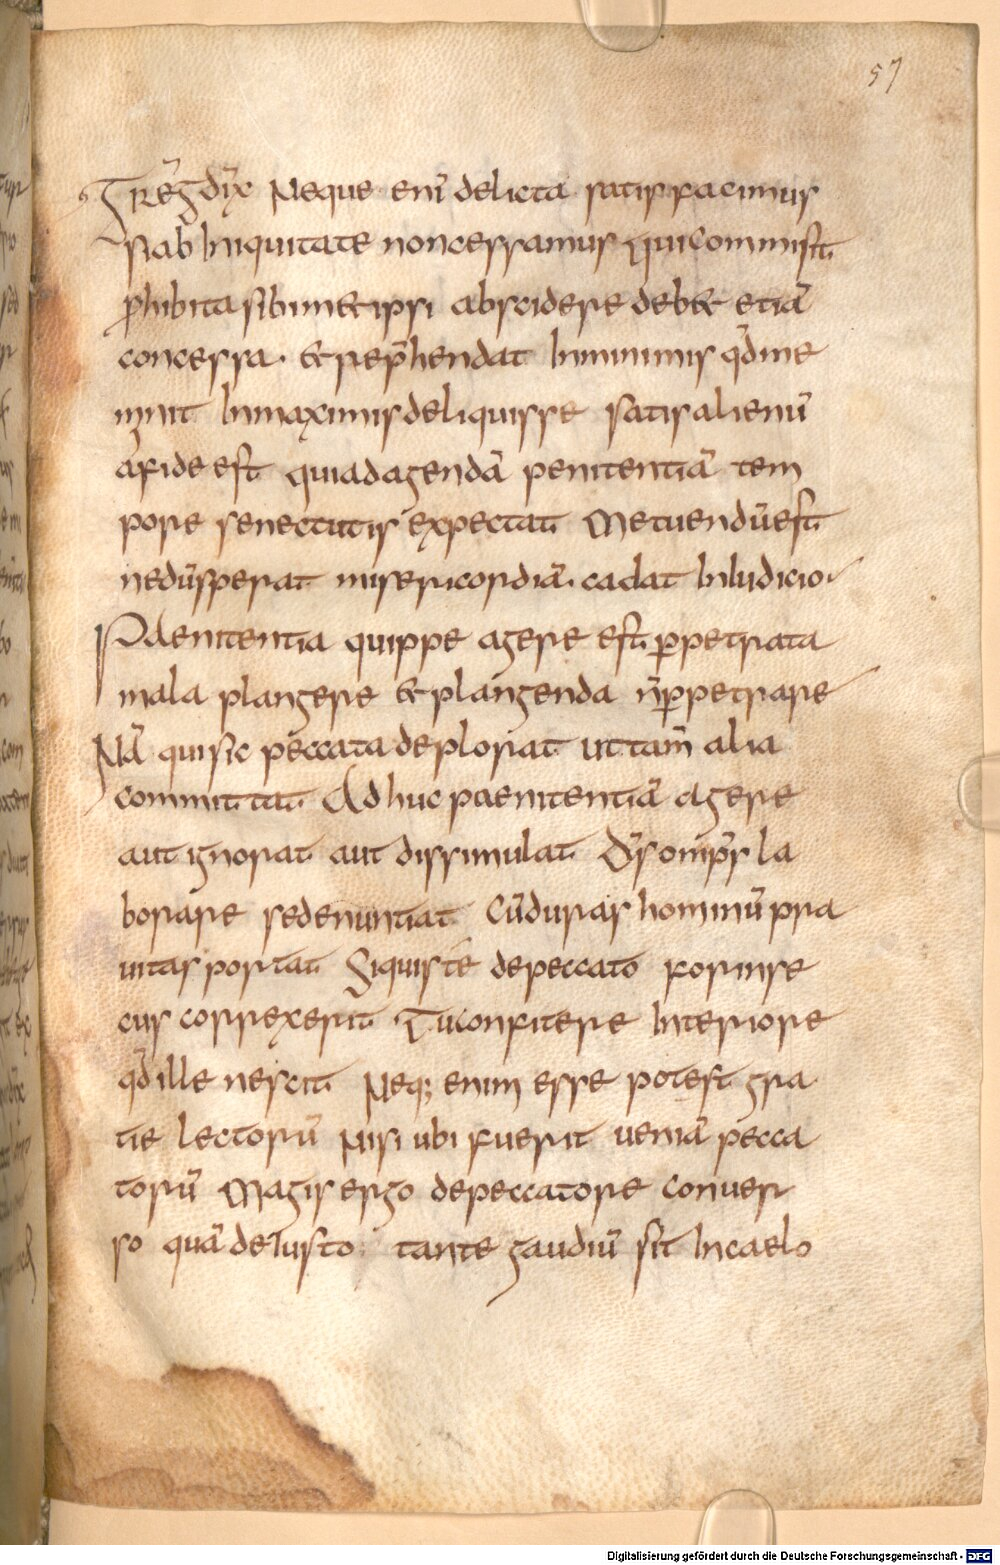 57
GREḠ DIX̄ Neque enī delicta satis facimus
si ab Iniquitate non cessamus Qui commisit
p̄hibita sibimet ipsi abscidere debet etiā
concessa. et rep̄hendat In minimis qđ me
minit In maximis deliquisse satis alienū
a fide est qui ad agendā penitentiā tem
pore senectutis expectat Metuendū est
ne dū sperat misericordiā. cadat In Iudicio
Paenitentia quippe agere est ꝑpetrata
mala plangere et plangenda n̄ ꝑpetrare
Nā qui sic peccata deplorat ut tam̄ alia
committat Adhuc paenitentiā agere
aut ignorat aut dissimulat D̄s omīp̄s la
borare se denuntiat Cū duras hominū pra
uitas portat Si quis te de peccato forinse
cus correxerit Tu confitere Interiore
qđ ille nescit Neq; enim esse potest gra
tie lectorū Nisi ubi fuerit ueniā pecca
torū Magis ergo de peccatore conuer
so quā de Iusto tante gaudiū sit In caelo
Digitalisierung gefördert durch die Deutsche Forschungsgemeinschaft - DFG